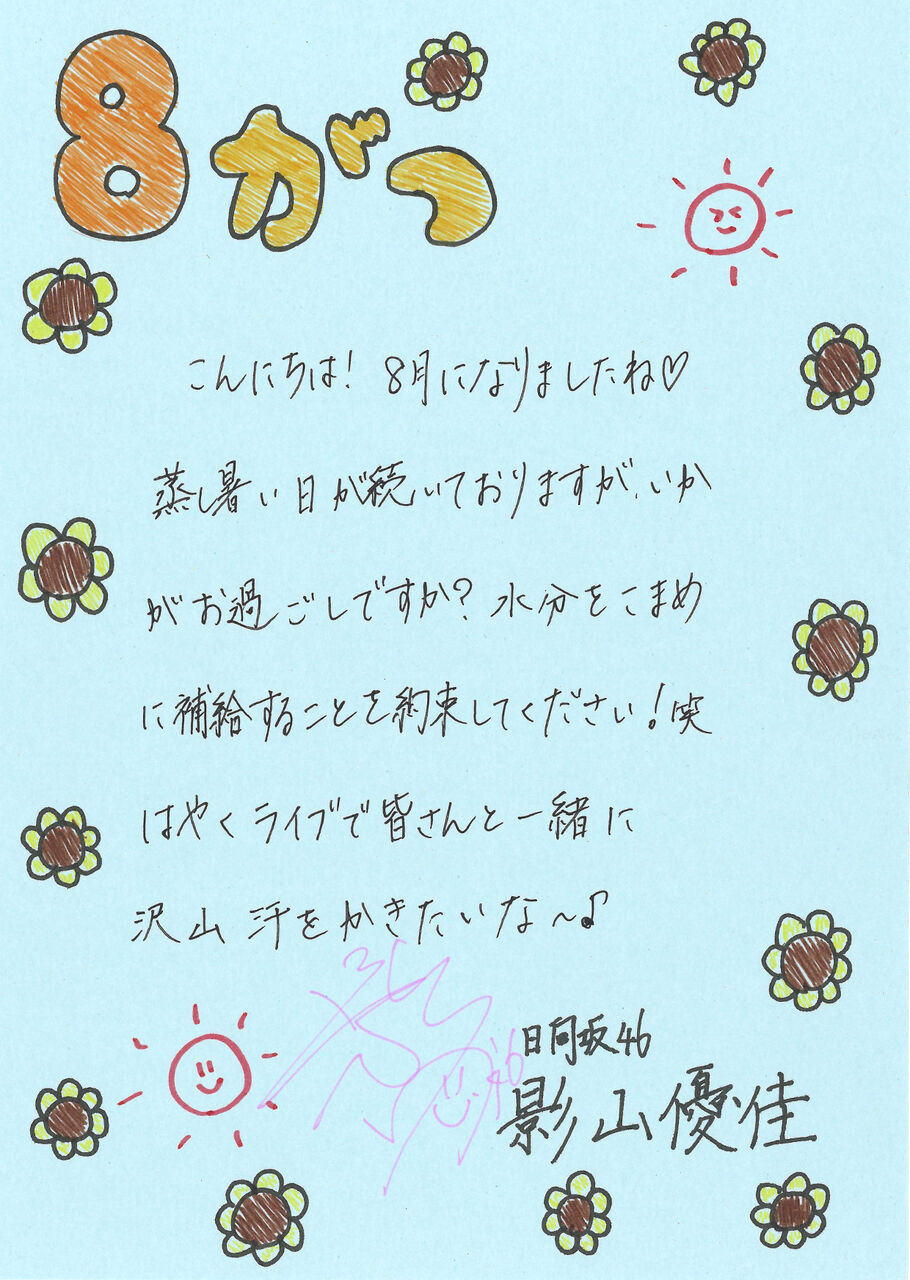 8がつ
こんにちは! 8月になりましたね♡
蒸し暑い日が続いておりますが、いか
がお過ごしですか? 水分をこまめ
に補給することを約束してください!笑
はやくライブで皆さんと一緒に
沢山汗をかきたいな〜♪
日向坂46
影山優佳